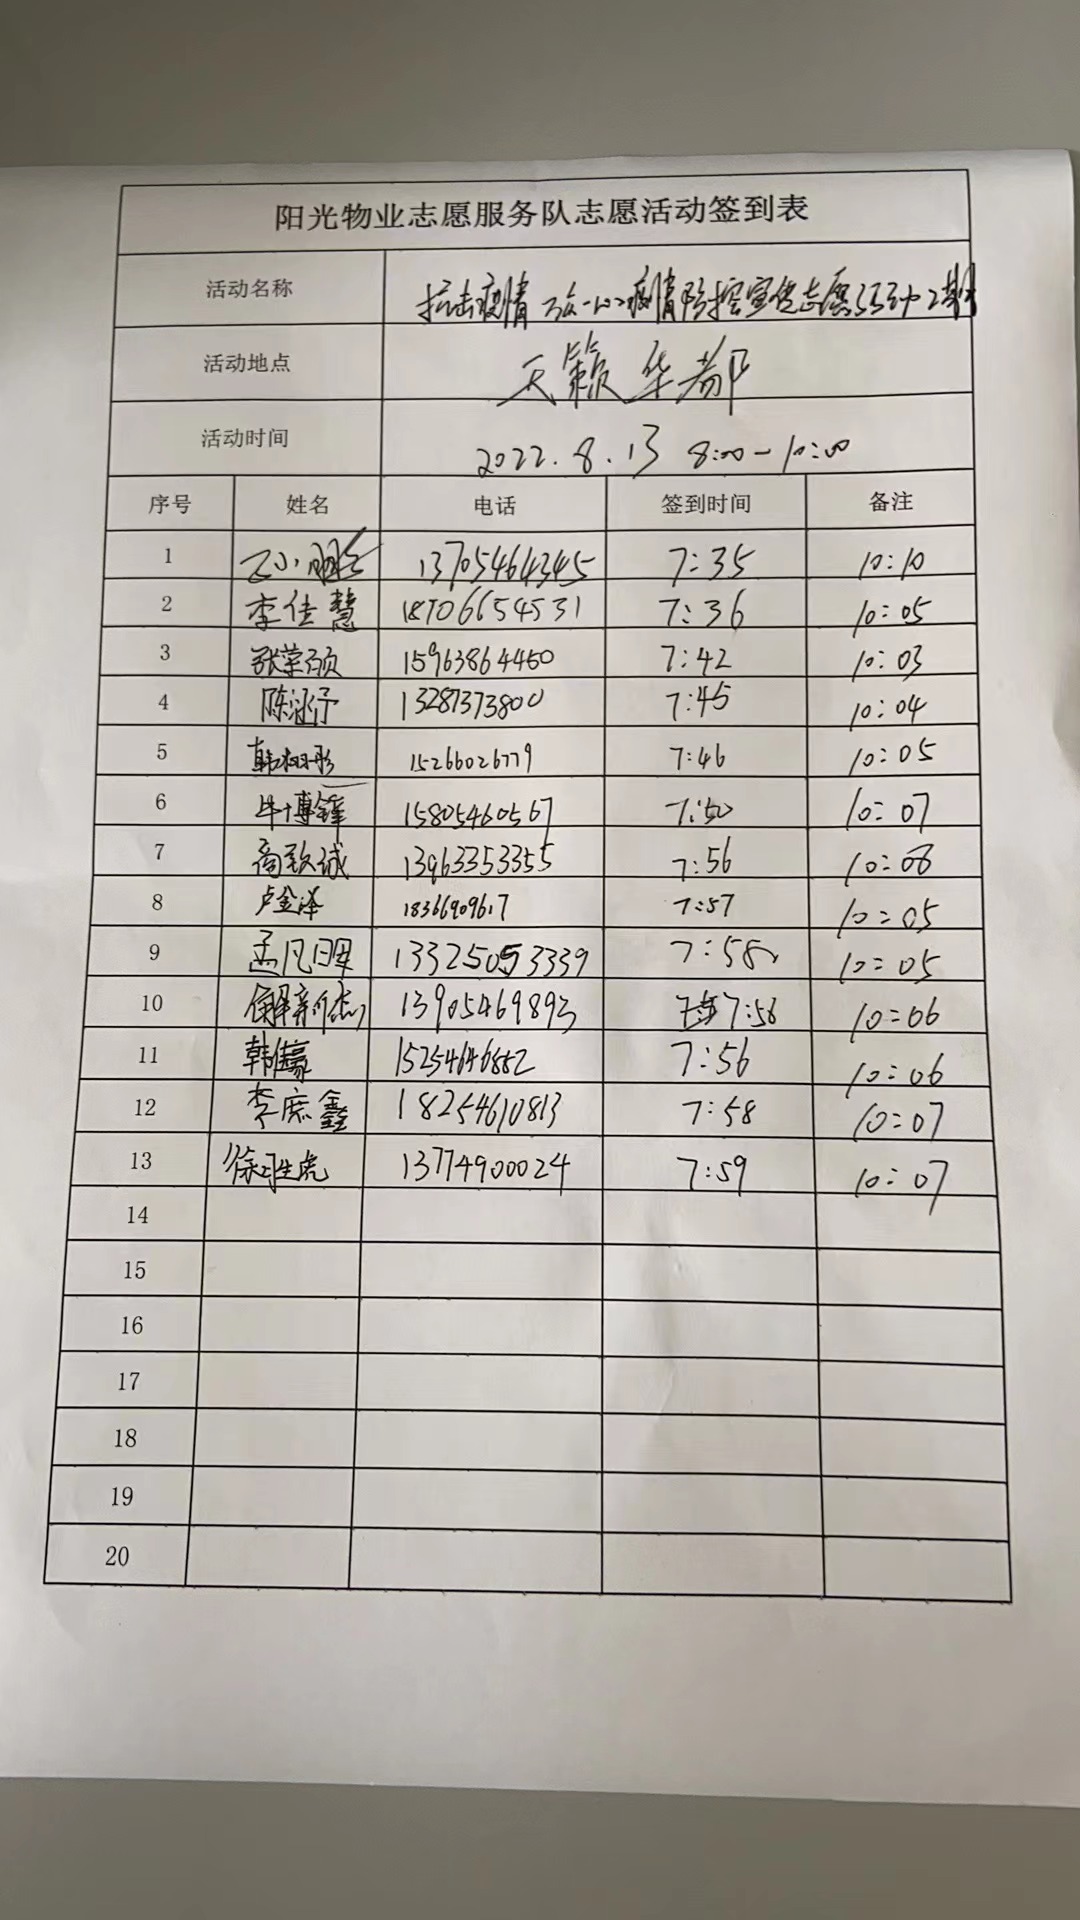 阳光物业志愿服务队志愿活动签到表
活动名称 抗击疫情 万众一心 疫情防控宣传志愿活动 2期
活动地点 天籁华都
活动时间 2022.8.13 8:00-10:00
序号 姓名 电话 签到时间 备注
1 13705464345 7:35 10:10
2 李佳慧 18706654531 7:36 10:05
3 张荣硕 15963864460 7:42 10:03
4 陈涵予 13287373800 7:45 10:04
5 韩栩彤 15266026779 7:46 10:05
6 牛博锋 15805460567 7:50 10:07
7 商致诚 13963353355 7:56 10:08
8 卢金泽 18366909617 7:57 10:05
9 孟凡 13325053339 7:58 10:05
10 解新杰 13905469893 7:58 10:06
11 韩佳豪 15254646882 7:56 10:06
12 李庶鑫 18254610813 7:58 10:07
13 13774900024 7:59 10:07
14
15
16
17
18
19
20